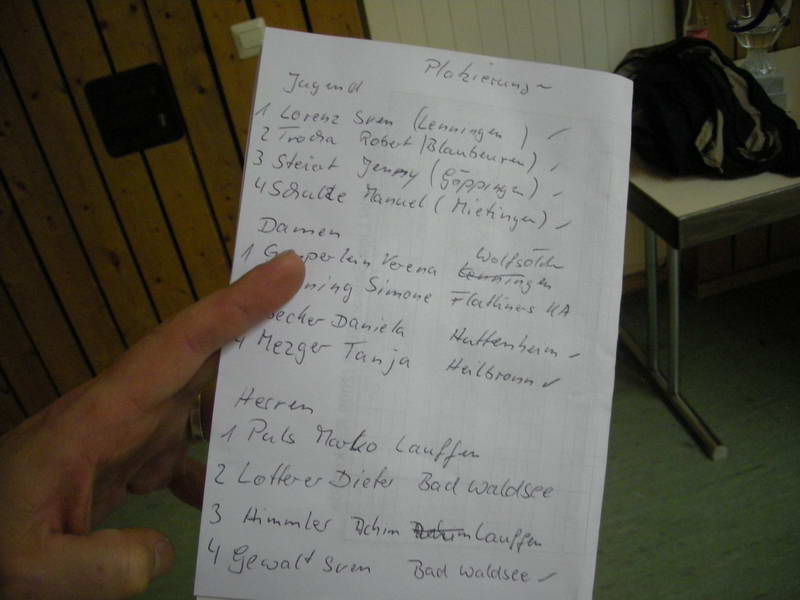 Platzierung
Jugend
1 Lorenz Sven (Lenningen)
2 Trocha Robert (Blaubeuren)
3 Jenny (Göppingen)
4 Schulze Manuel (Mietingen)
Damen
1 Verena Wolfsölden
Simone Flatliners KA
Becker Daniela Huttenheim
4 Mezger Tanja Heilbronn
Herren
1 Puls Marko Lauffen
2 Lotterer Dieter Bad Waldsee
3 Himmler Achim Lauffen
4 Gewalt Sven Bad Waldsee